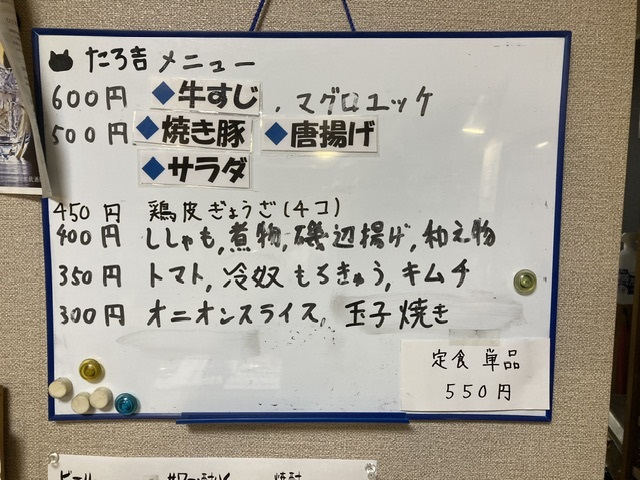 たろ吉 メニュー
600円 ◆牛すじ , マグロユッケ
500円 ◆焼き豚 ◆唐揚げ
◆サラダ
450円 鶏皮ぎょうざ(4コ)
400円 ししゃも, 煮物, 磯辺揚げ, 和え物
350円 トマト, 冷奴 もろきゅう, キムチ
300円 オニオンスライス, 玉子焼き
定食 単品
550円
ビール